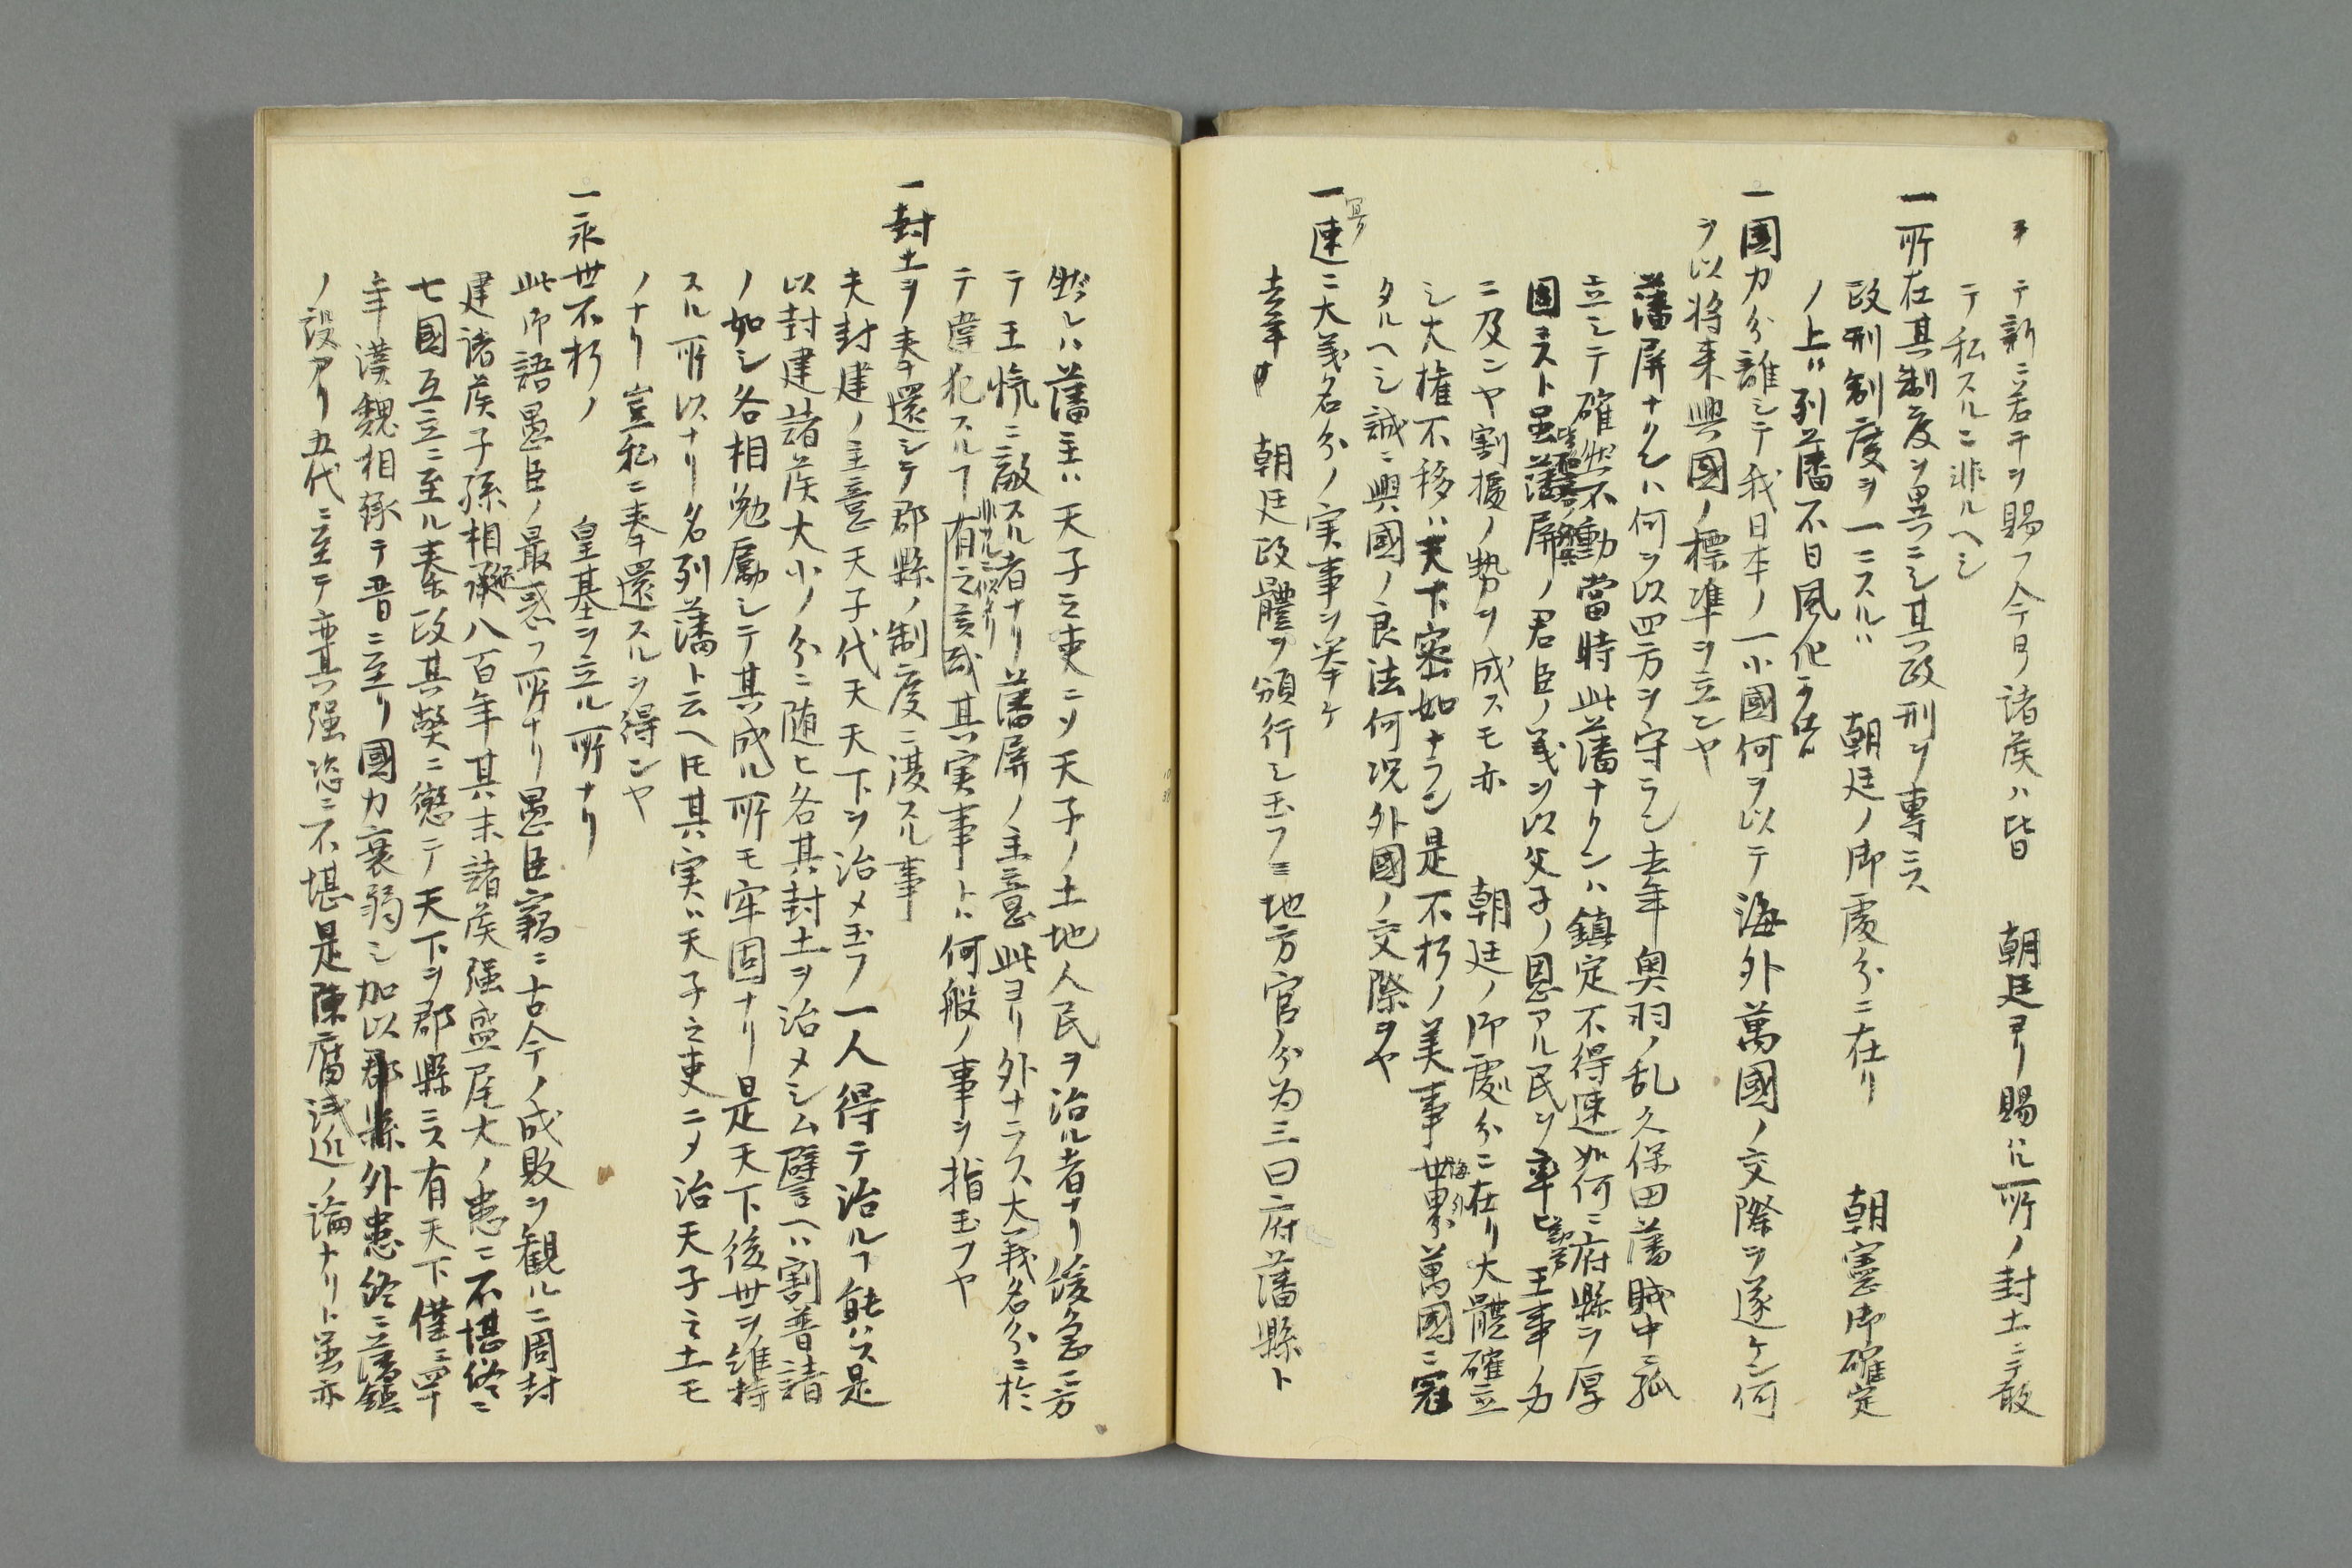 テ新ニ若干ヲ賜フ今日諸侯ハ皆　朝廷ヨリ賜ル所ノ封土ニテ敢
テ私スルニ非ルヘシ
一所在其制度ヲ異ニシ其政刑ヲ專ニス
政刑制度ヲ一ニスルハ　朝廷ノ御處分ニ在リ　朝憲御確定
ノ上ハ列藩不日風化可仕
一国力分離シテ我日本ノ一小國何ヲ以テ海外萬國ノ交際ヲ遂ケン何
ヲ以将来興國ノ標準ヲ立ンヤ
藩屏ナクンハ何ヲ以四方ヲ守ラン去年奥羽ノ乱久保田藩賊中ニ孤
立シテ確然不動當時此藩ナクンハ鎮定不得速如何ニ府縣ヲ厚
固ニスト虽藩屏ノ君臣ノ義ヲ以父子ノ恩アル民ヲ率ヒ王事ノ為
ニ及ンヤ割據ノ勢ヲ成スモ亦　朝廷ノ御處分ニ在リ大體確立
シ大権不移ハ天下密如ナラン是不朽ノ美事海外萬國ニ冠
タルヘシ誠ニ興國ノ良法何况外國ノ交際ヲヤ
一速ニ大義名分ノ実事ヲ挙ケ
去年　朝廷政體ヲ頒行シ玉フニ地方官分為三曰府藩縣ト
然レハ藩主ハ天子之吏ニシテ天子ノ土地人民ヲ治ル者ナリ緩急ニ方
テ王愾ニ敵スル者ナリ藩屏ノ主意此ヨリ外ナラス大義名分ニ於
テ違犯スルヿ有之哉其実事トハ何般ノ事ヲ指玉フヤ
一封土ヲ奉還シテ郡縣ノ制度ニ復スル事
夫封建ノ主意天子代天天下ヲ治メ玉フ一人得テ治ルヿ能ハス是
以封建諸侯大小ノ分ニ随ヒ各其封土ヲ治メシム譬ヘハ割普請
ノ如シ各相勉勵シテ其成ル所モ牢固ナリ是天下後世ヲ維持
スル所以ナリ名列藩ト云ヘトモ其実ハ天子之吏ニメ治天子之土モ
ノナリ豈私ニ奉還スルヲ得ンヤ
一永世不朽ノ　皇基ヲ立ル所ナリ
此御語愚臣ノ最惑フ所ナリ愚臣竊ニ古今ノ成敗ヲ観ルニ周封
建諸侯子孫相承八百年其末諸侯强盛尾大ノ患ニ不堪終ニ
七國互立ニ至ル秦政其弊ニ懲テ天下ヲ郡縣ニス有天下僅ニ四十
年漢魏相承テ晋ニ至リ國力衰弱シ加以郡縣外患終ニ立藩鎮
ノ設アリ五代ニ至テ亦其强恣ニ不堪是陳腐浅近ノ論ナリト虽亦